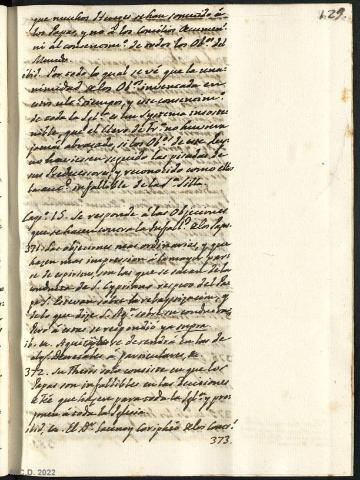 129.
que muchos Hereges se han sometido á
los Papas, y no á los Concilios Ecumeni-
ni al consentimto. de todos los Obpos. del
Mundo.
ibid. Por todo lo qual se vé que la una-
nimidad de los Obpos. inventada en
estos ultos. tiempos, y ese consentimto.
de toda la Iglª. es un systema insoste-
nible, que el Clero de Frª. no huviera
jamas abrazado, si los Obpos. de este Rey-
no huviesen seguido las pisadas de
sus Predecesores, y reconocido como ellos
la autd. infallible de la Sta. Silla.
Capº. 15. Se responde á las Objeciones
que se hacen contra la Infallibd. de los Papas.
371. Las objeciones mas ordinarias, y que
hacen mas impresion á la mayor par-
te de espiritus, son las que se sacan de la
conducta de S. Cypriano respecto del Pa-
pa S. Estevan sobre la rebaptizacion, y
de lo que dijo S. Agn. sobre su conducta.
Pero á estas se respondió ya supra
ib. n. Aqui se desenderá en las de-
a particulares,
372. Su Thesis solo consiste en que los
Papas son infallibles en las decisiones
de Fé que hacen para toda la Iglª. y pro-
ponen á toda la Iglesia.
ibid. n. El Dr. Launoy Corifeo de los Cont.
373.
C.D. 2022